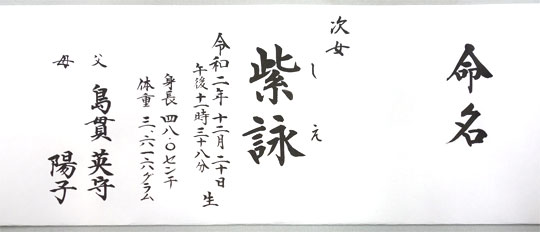 命名
次女
紫詠
しえ
令和二年十二月二十日 生
午後十一時三十八分
身長 四八.〇センチ
体重 三.六一六グラム
父 島貫 英守
母 陽子